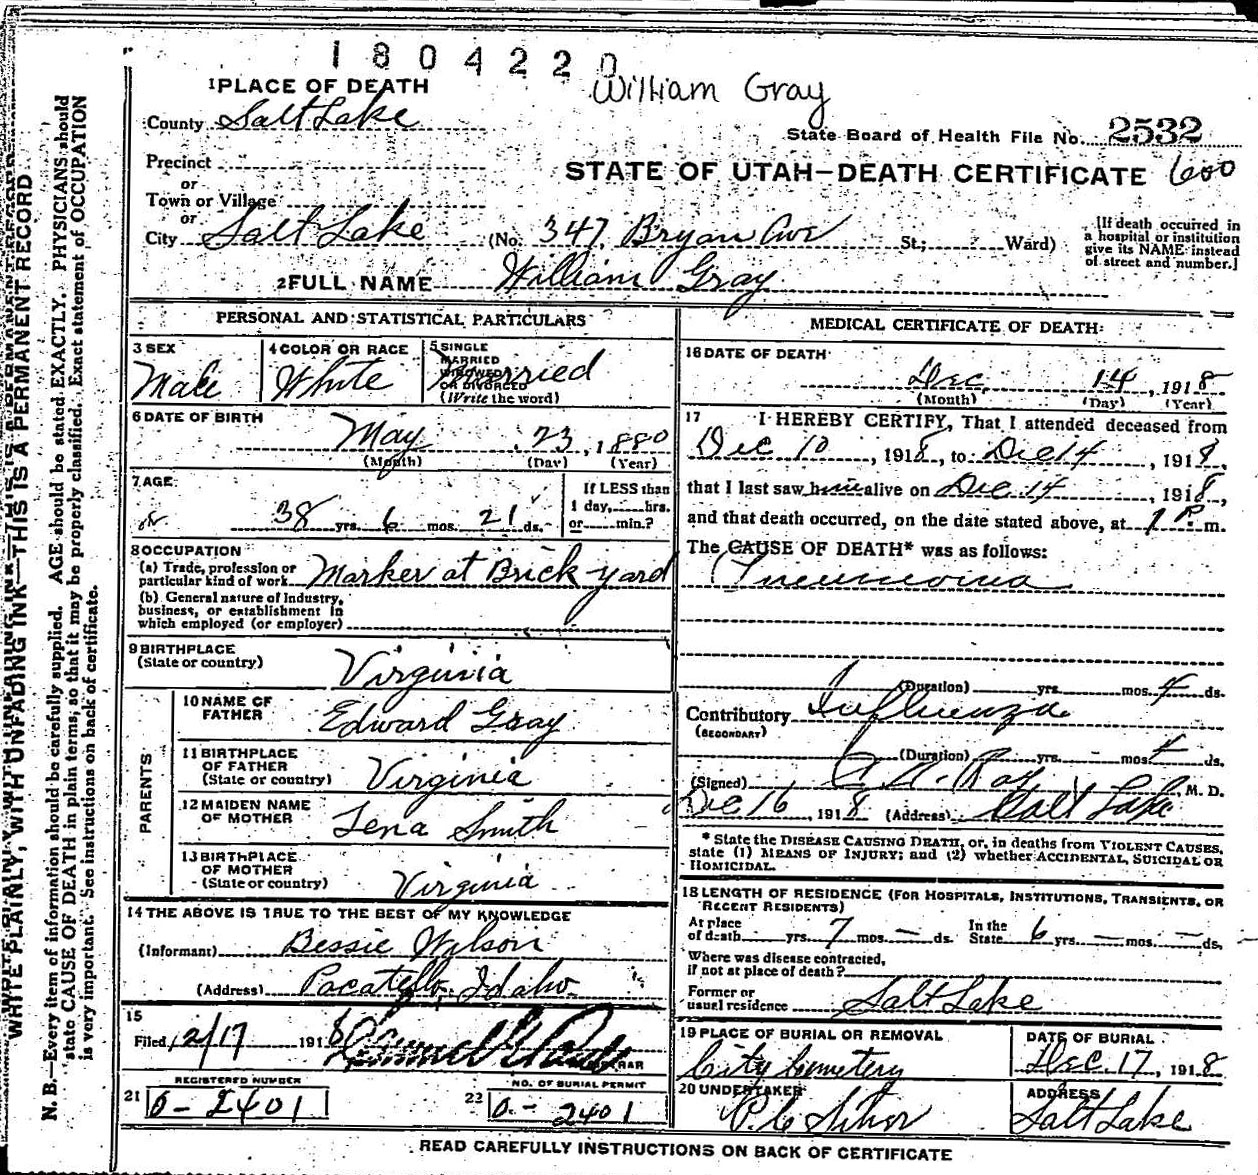 1804220
William Gray
1 PLACE OF DEATH
County Salt Lake
State Board of Health File No. 2532
Precinct
or
Town or Village
or
STATE OF UTAH—DEATH CERTIFICATE 600
City Salt Lake (No. 347 Bryan Ave St; Ward)
[If death occurred in
a hospital or institution
give its NAME instead
of street and number.]
2 FULL NAME William Gray
PERSONAL AND STATISTICAL PARTICULARS
3 SEX
Male
4 COLOR OR RACE
White
5 SINGLE
MARRIED
WIDOWED
OR DIVORCED
(Write the word)
Married
6 DATE OF BIRTH
May 23, 1880
(Month) (Day) (Year)
7 AGE
38 yrs. 6 mos. 21 ds.
If LESS than
1 day, hrs.
or min.?
8 OCCUPATION
(a) Trade, profession or
particular kind of work Marker at Brick yard
(b) General nature of Industry,
business, or establishment in
which employed (or employer)
9 BIRTHPLACE
(State or country) Virginia
PARENTS
10 NAME OF
FATHER Edward Gray
11 BIRTHPLACE
OF FATHER
(State or country) Virginia
12 MAIDEN NAME
OF MOTHER Lena Smith
13 BIRTHPLACE
OF MOTHER
(State or country) Virginia
14 THE ABOVE IS TRUE TO THE BEST OF MY KNOWLEDGE
(Informant) Bessie Wilson
(Address) Pacatello, Idaho
15
Filed 12/17 1918
REGISTERED NUMBER
21 O-2401
NO. OF BURIAL PERMIT
22 O-2401
MEDICAL CERTIFICATE OF DEATH
16 DATE OF DEATH
Dec 14, 1918
(Month) (Day) (Year)
17 I HEREBY CERTIFY, That I attended deceased from
Dec 10, 1918, to Dec 14, 1918,
that I last saw him alive on Dec 14, 1918,
and that death occurred, on the date stated above, at 1 P. m.
The CAUSE OF DEATH* was as follows:
Pneumonia
(Duration) yrs. mos. 4 ds.
Contributory Influenza
(SECONDARY)
(Duration) yrs. - mos. 4 ds.
(Signed) M. D.
Dec 16 1918 (Address) Salt Lake
* State the DISEASE CAUSING DEATH, or, in deaths from VIOLENT CAUSES,
state (1) MEANS OF INJURY; and (2) whether ACCIDENTAL, SUICIDAL OR
HOMICIDAL.
18 LENGTH OF RESIDENCE (FOR HOSPITALS, INSTITUTIONS, TRANSIENTS, OR
RECENT RESIDENTS)
At place
of death yrs. 7 mos. — ds. In the
State 6 yrs. — mos. — ds.
Where was disease contracted,
if not at place of death?
Former or
usual residence Salt Lake
19 PLACE OF BURIAL OR REMOVAL
City Cemetery
DATE OF BURIAL
Dec. 17, 1918
20 UNDERTAKER
ADDRESS
Salt Lake
READ CAREFULLY INSTRUCTIONS ON BACK OF CERTIFICATE
WRITE PLAINLY, WITH UNFADING INK—THIS IS A PERMANENT RECORD.
N. B.—Every item of information should be carefully supplied. AGE should be stated EXACTLY. PHYSICIANS should
state CAUSE OF DEATH in plain terms, so that it may be properly classified. Exact statement of OCCUPATION
is very important. See instructions on back of certificate.